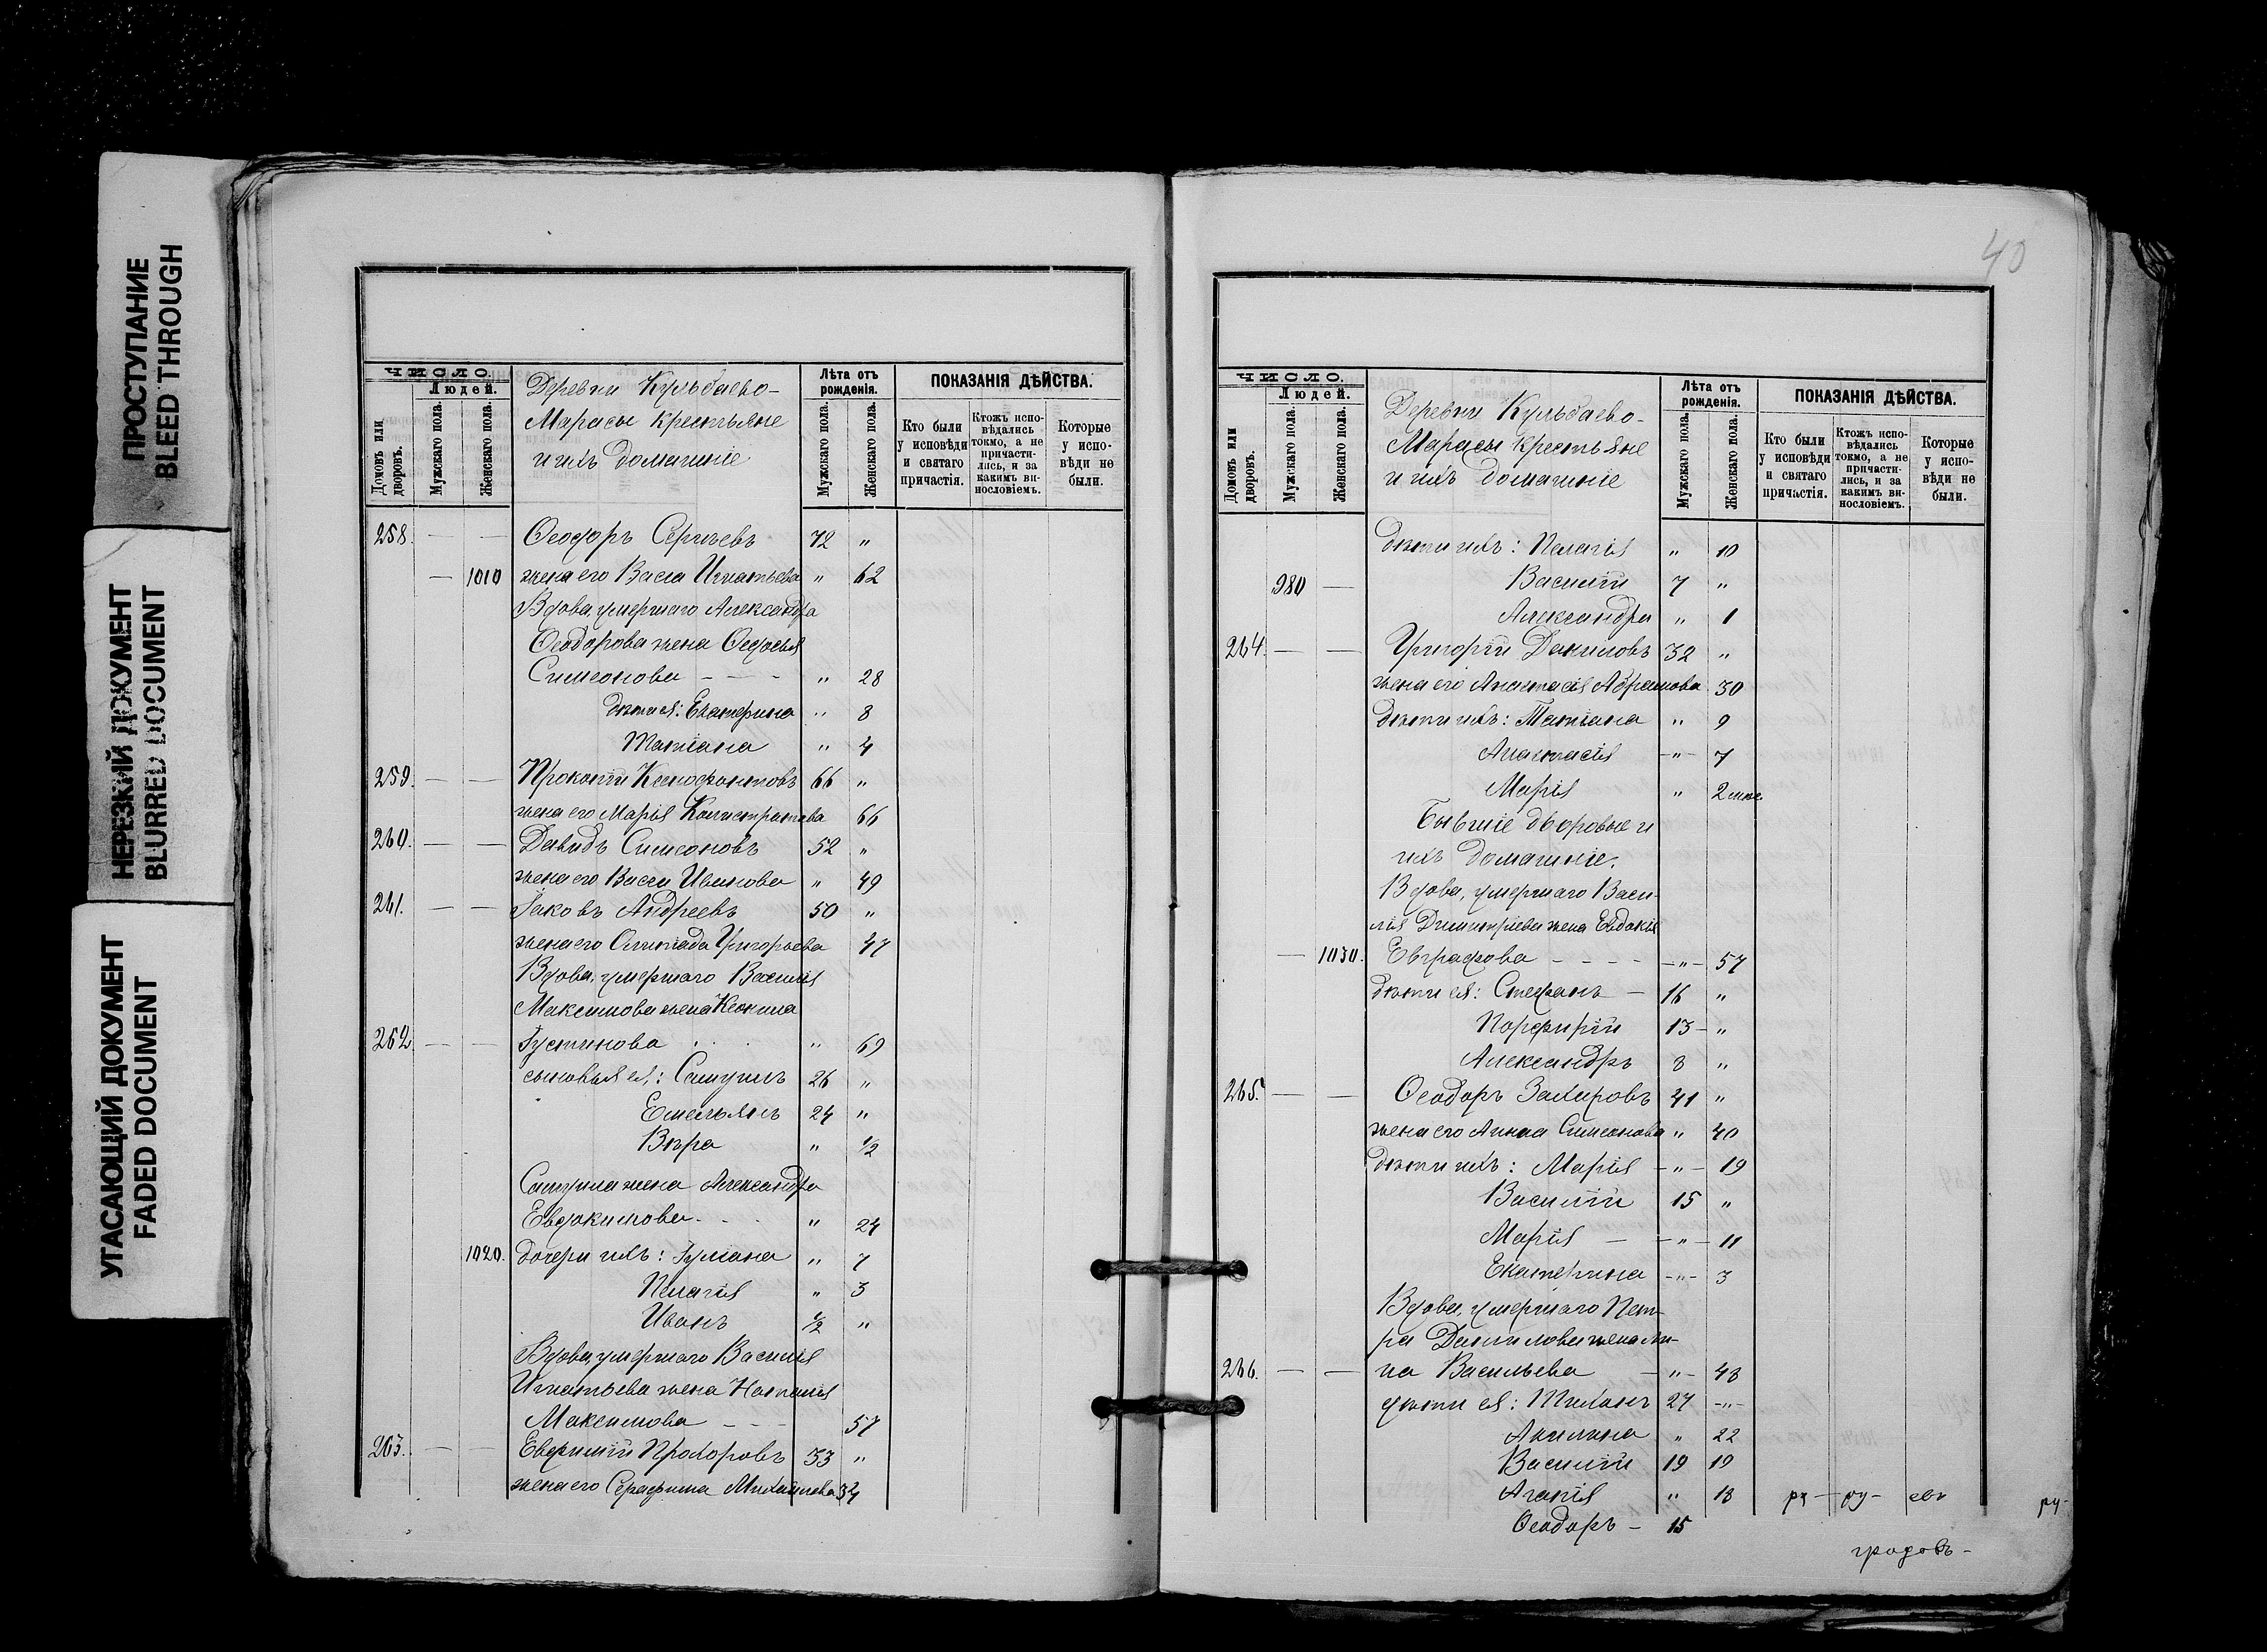 ПРОСТУПАНИЕ
BLEED THROUGH
НЕРЕЗКИЙ ДОКУМЕНТ
BLURRED DOCUMENT
УГАСАЮЩИЙ ДОКУМЕНТ
FADED DOCUMENT
ЧИСЛО.
Людей.
Домовъ или дворовъ.
Мужскаго пола.
Женскаго пола.
Деревни Кульбаево-
Марасы крестьяне
и ихъ домашніе
Лѣта отъ рожденія.
Мужскаго пола.
Женскаго пола.
ПОКАЗАНІЯ ДѢЙСТВА.
Кто были у исповѣди и святаго причастія.
Ктожъ испо-вѣдались токмо, а не причасти-лись, и за какимъ ви-нословіемъ.
Которые у испо-вѣди не были.
258. — — Ѳеодоръ Сергѣевъ 72 "
— 1010 жена его Васса Игнатьева " 62
Вдова, умершаго Александра
Ѳеодорова жена Ѳеодосья
Симеонова - - - " 28
дѣти ея: Екатерина " 8
Татіана " 4
259. — — Прокопій Ксенофонтовъ 66 "
жена его Марія Каллистратова 66
260. — — Давидъ Симеоновъ 52 "
жена его Васса Иванова " 49
261. — — Іаковъ Андреевъ 50 "
жена его Олимпіада Григорьева 47
Вдова, умершаго Василія
Максимова жена Ксенія
262 — — Іустинова . . . " 69
сыновья ея: Самуилъ 26 "
Емельянъ 24 "
Вѣра " ½
Самуила жена Александра
Евдокимова - - - " 24
1020. дочери ихъ: Іуліана " 7
Пелагія " 3
Иванъ ½ "
Вдова, умершаго Василія
Игнатьева жена Наталія
Максимова - - - 57
263. — — Евфимій Прохоровъ 33 "
жена его Серафима Михайлова 34
40
ЧИСЛО.
Людей.
Домовъ или дворовъ.
Мужскаго пола.
Женскаго пола.
Деревни Кульбаево-
Марасы крестьяне
и ихъ домашніе
Лѣта отъ рожденія.
Мужскаго пола.
Женскаго пола.
ПОКАЗАНІЯ ДѢЙСТВА.
Кто были у исповѣди и святаго причастія.
Ктожъ испо-вѣдались токмо, а не причасти-лись, и за какимъ ви-нословіемъ.
Которые у испо-вѣди не были.
дѣти ихъ: Пелагія " 10
980 — Василій 7 "
Александра " 1
264. — — Григорій Даниловъ 32 "
жена его Анастасія Абрамова 30
дѣти ихъ: Татіана " 9
Анастасія -"- 7
Марія " 2 мѣс.
Бывшіе дворовые и
ихъ домашніе.
Вдова, умершаго Васи-
лія Димитріева жена Евдокія
— 1030. Евграфова - - - - -"- 57
дѣти ея: Стефанъ — 16 "
Порфирій 13 - "
Александръ 8 "
265. — — Ѳеодоръ Захаровъ 41 "
жена его Анна Симеонова " 40
дѣти ихъ: Марія -"- 19
Василій 15 "
Марія — -"- 11
Екатерина -"- 3
Вдова, умершаго Пет-
ра Данилова жена Ан-
266. — — на Васильева -"- 48
дѣти ея: 27 -"-
Акилина " 22
Василій 19 19
Агапія " 18 ру- ру-
Ѳеодоръ - 15
ру-
градовъ-